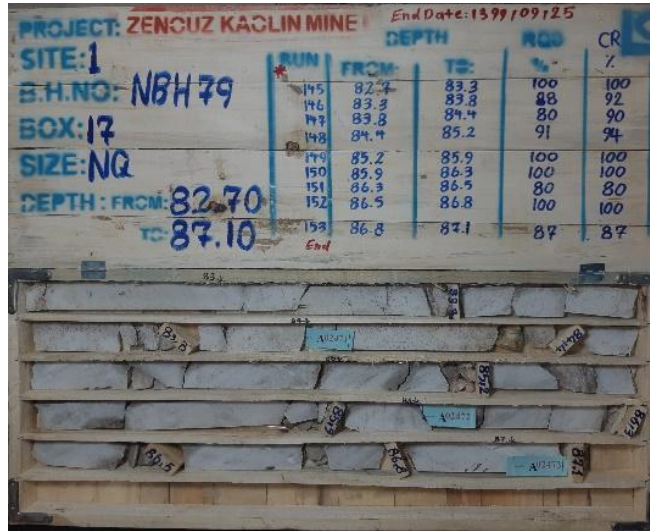 PROJECT: ZENOUZ KAOLIN MINE
End Date: 1399/09/25
SITE: 1
B.H.NO: NBH79
BOX: 17
SIZE: NQ
DEPTH: FROM: 82.70
TO: 87.10
DEPTH RQD CR
RUN FROM: TO: % %
* 145 82.7 83.3 100 100
146 83.3 83.8 88 92
147 83.8 84.4 80 90
148 84.4 85.2 91 94
149 85.2 85.9 100 100
150 85.9 86.3 100 100
151 86.3 86.5 80 80
152 86.5 86.8 100 100
153 86.8 87.1 87 87
End
83
83.3
84
82.8 A02471 84.4
85.2
A02472 86.3
87
86.5 86.8 A02473 87.1